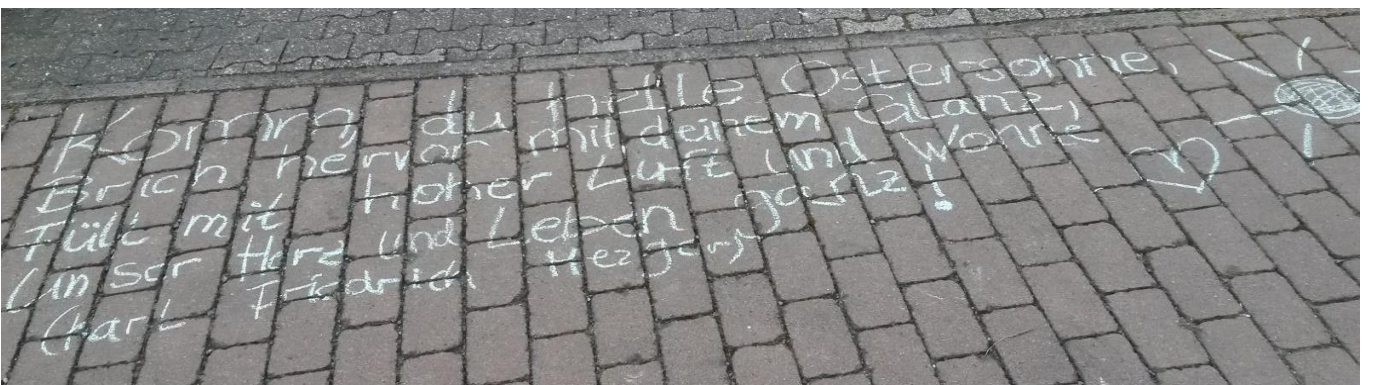 Komm, du helle Ostersonne,
Brich hervor mit deinem Glanz,
Füll mit hoher Luft und Wonne
Unser Herz und Leben ganz!
Charl Friedrich